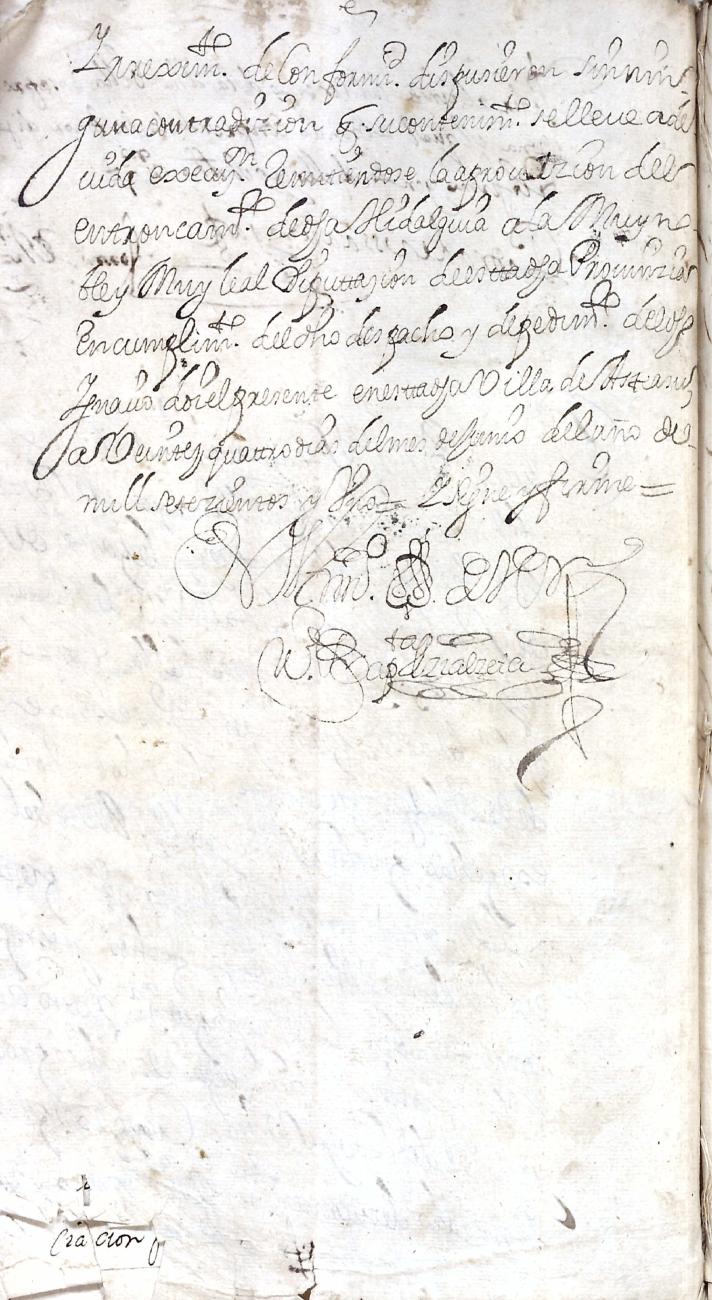 y rexim.to de Conformi.d dispusieron sin nin
guna contradizion q. su contenim.to se lleve a de
vida execu.on Remitiendose la aprovazion del
entroncam.to de dha Hidalguia a la Muy no
ble y Muy leal Diputtazion de estta dha Provinzia
En cumplim.to del dho despacho y de pedim.to del dho
Ignaçio doi el presente en estta dha Villa de
a Veinte y quattro dias del mes de Junio del año de
mill setezientos y Uno = Y signe y firme =
En de Ver
Bap.ta de
cion